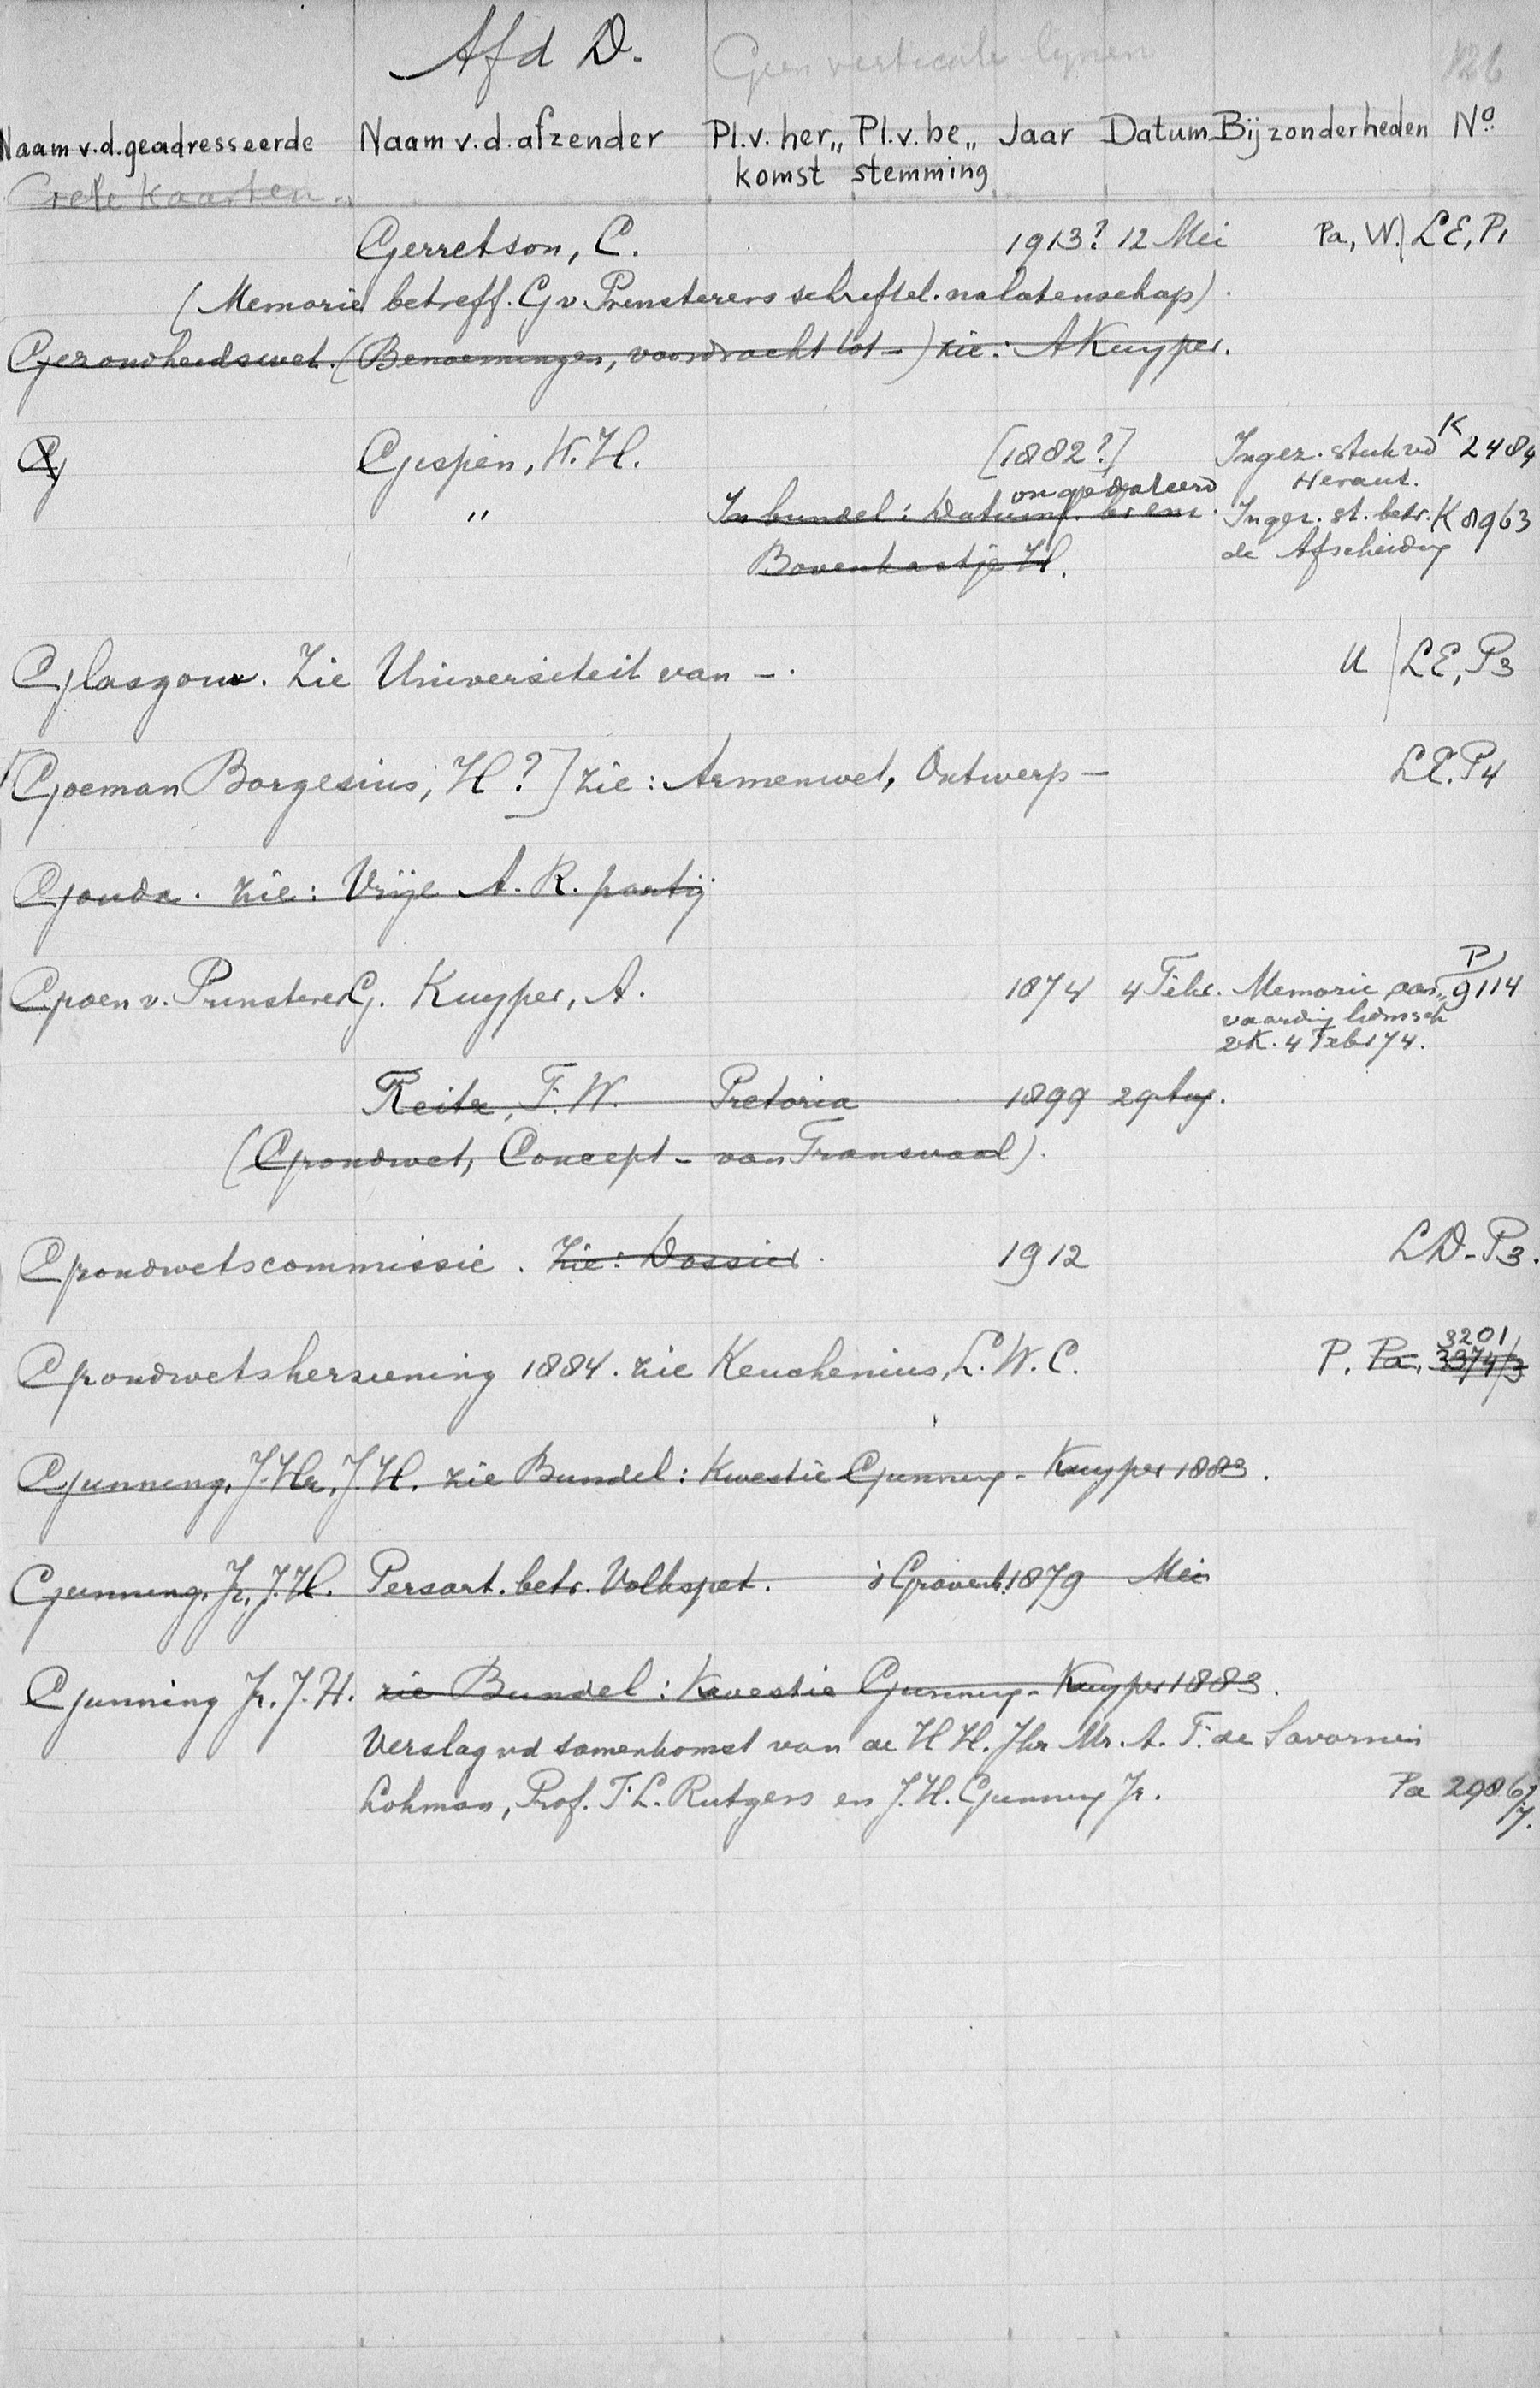 Afd D. Geen verticale lynen 126
Naam v.d. geadresseerde Naam v.d. afzender Pl. v. her„ Pl. v. be„ Jaar Datum Bijzonderheden No.
komst stemming
kaarten.
Gerretson, C. 1913? 12 Mei Pa, W. / LE, P1
(Memorie betreff. G v Prinsterers schriftel. nalatenschap).
Gezondheidswet. (Benoemingen, voordracht tot -) zie: A Kuyper.
G Gispen, W. H. [1882?] Ingez. stuk vd K 2484
Heraut.
ongedateerd
" In bundel: Datum Ingez. st. betr. K 8963
Bovenkastje H. de Afscheiding
Glasgow. Zie Universiteit van -. U / LE, P3
[Goeman Borgesius, H?] zie: Armenwet, Ontwerp - LE. P4
Gouda. zie: Vrije A. R. partij
Groen v. Prinsterer G. Kuyper, A. 1874 4 Febr. Memorie aan„ P 9114
vaarding lidmsch
2K. 4 Feb 174.
Reitz, F. W. Pretoria 1899 29 Aug.
(Grondwet, Concept - van Transvaal).
Grondwetscommissie. Zie: Dossier. 1912 LD - P3.
3201
Grondwetsherziening 1884. zie Keuchenius, L. W. C. P. Pa. 3374/3
Gunning, J. Hz, J. H. zie Bundel: Kwestie Gunning - Kuyper 1883.
Gunning, Jr, J. H. Persart. betr. Volkspet. 's Gravenh. 1879 Mei
Gunning Jr. J. H. zie Bundel: Kwestie Gunning - Kuyper 1883.
Verslag vd samenkomst van de H H. Jhr Mr. A. F. de Savornin
Lohman, Prof. F. L. Rutgers en J. H. Gunning Jr. Pa 2986